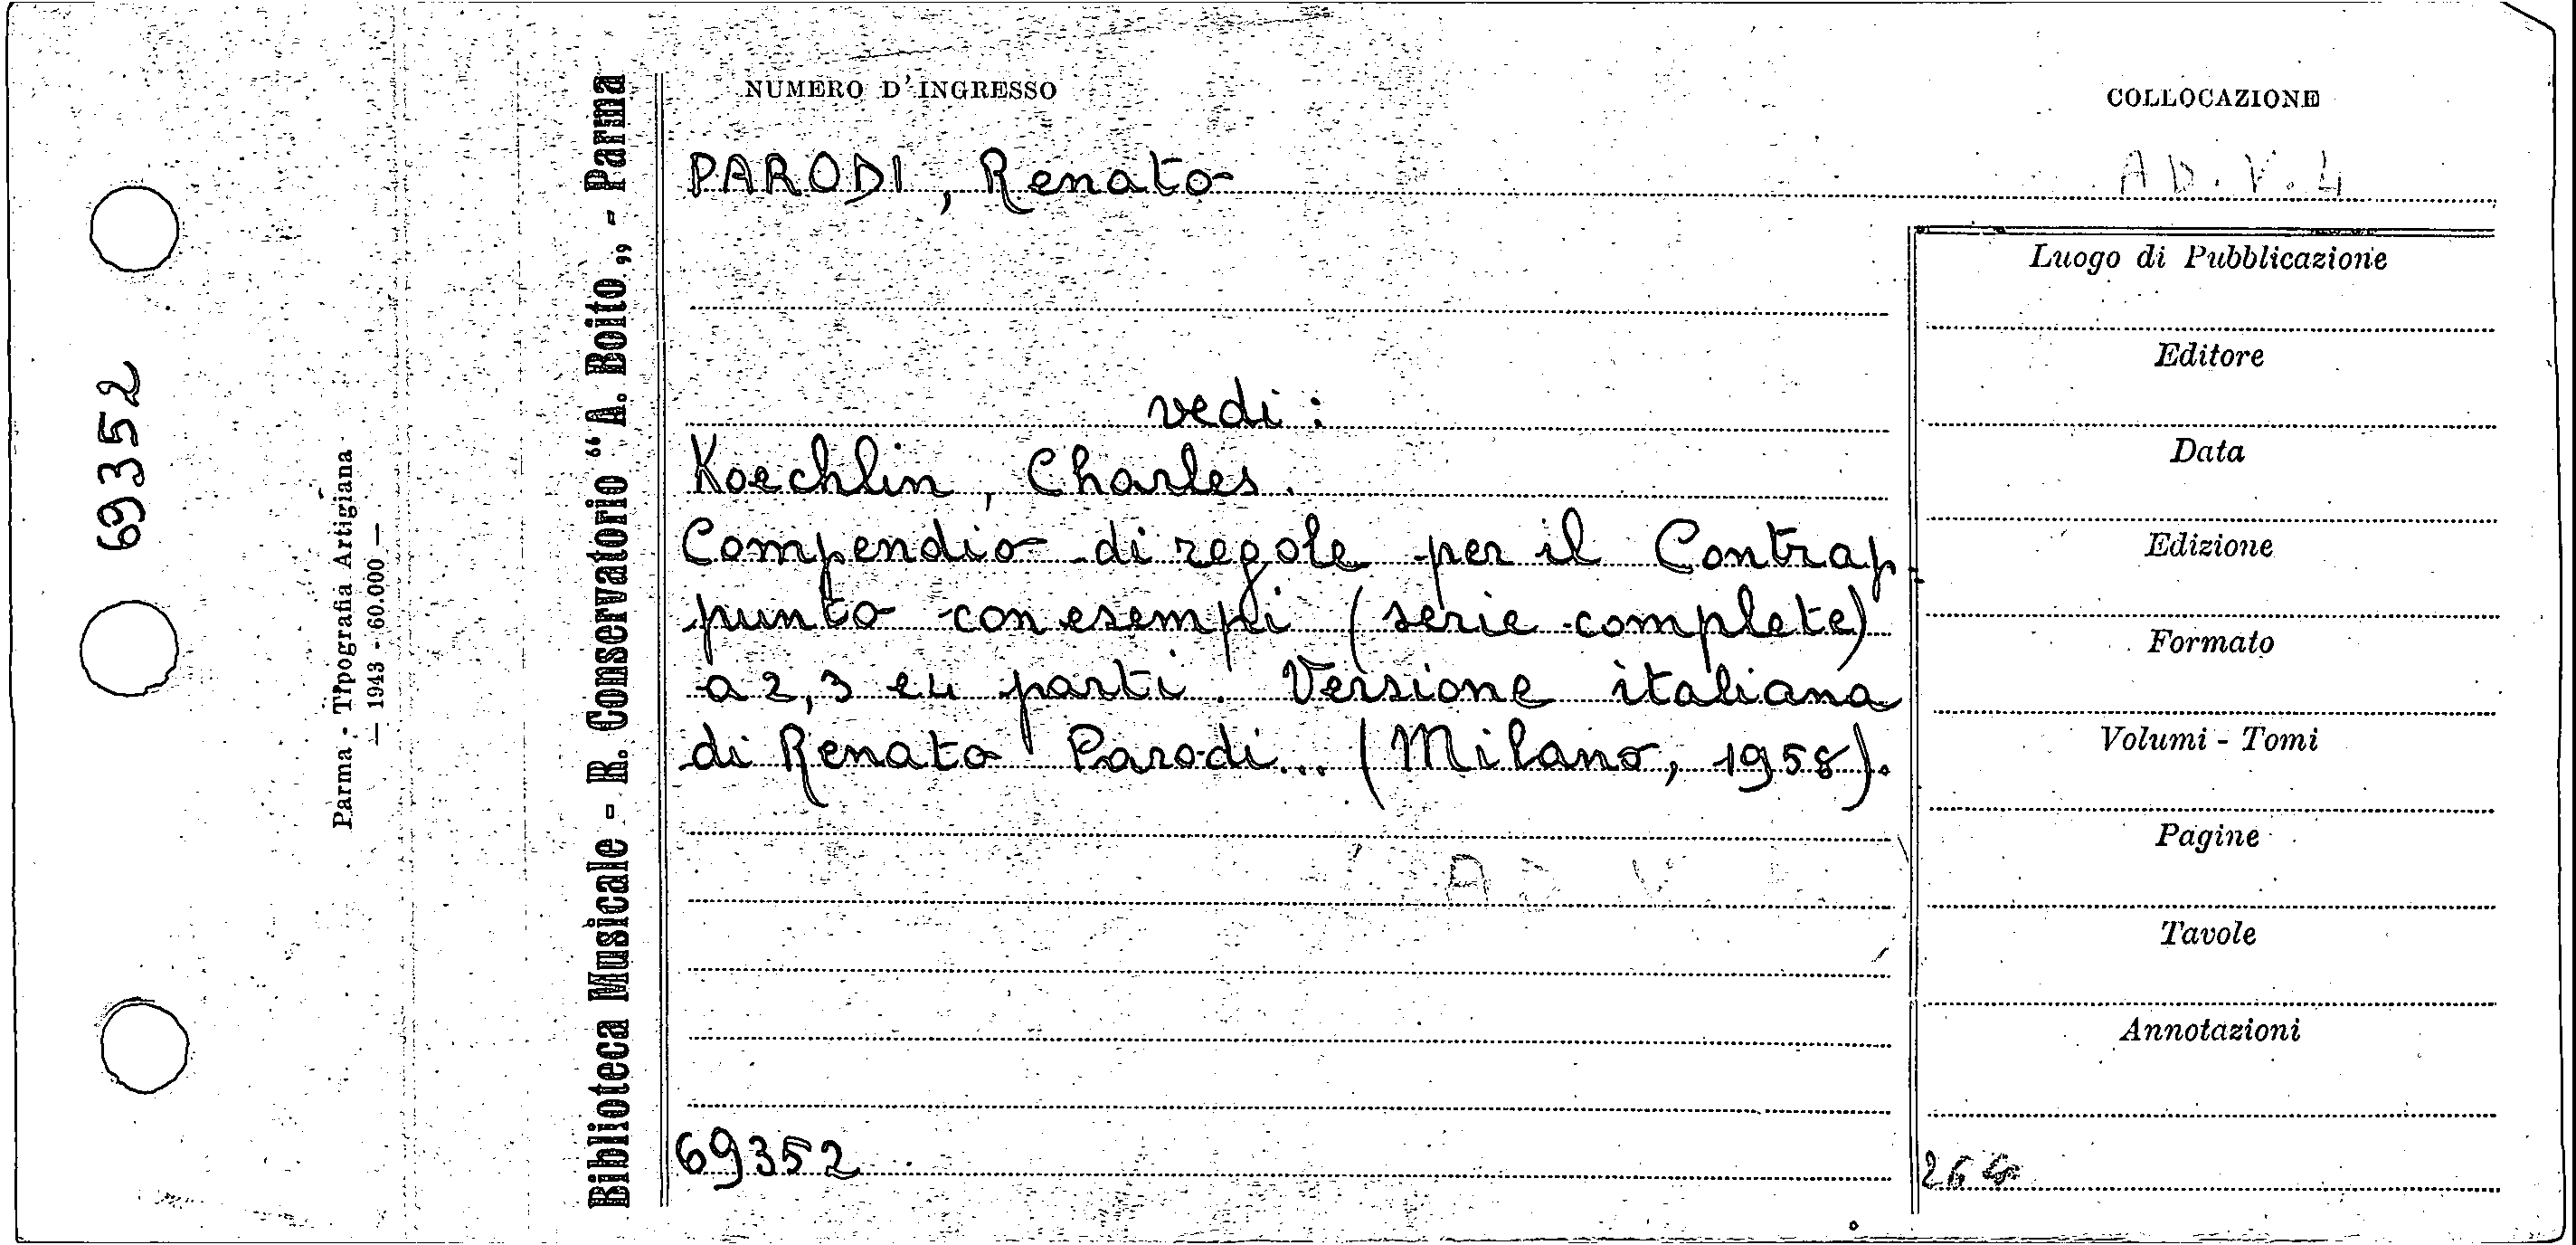 69352
Parma - Tipografia Artigiana
— 1943 - 60.000 —
Biblioteca Musicale - R. Conservatorio “A. Boito„ - Parma
NUMERO D'INGRESSO
COLLOCAZIONE
PARODI, Renato
AD. V. 4
vedi:
Koechlin, Charles.
Compendio di regole per il Contrap
punto con esempi (serie complete)
a 2, 3 e 4 parti. Versione italiana
di Renato Parodi... (Milano, 1958).
A D V
69352
Luogo di Pubblicazione
Editore
Data
Edizione
Formato
Volumi - Tomi
Pagine
Tavole
Annotazioni